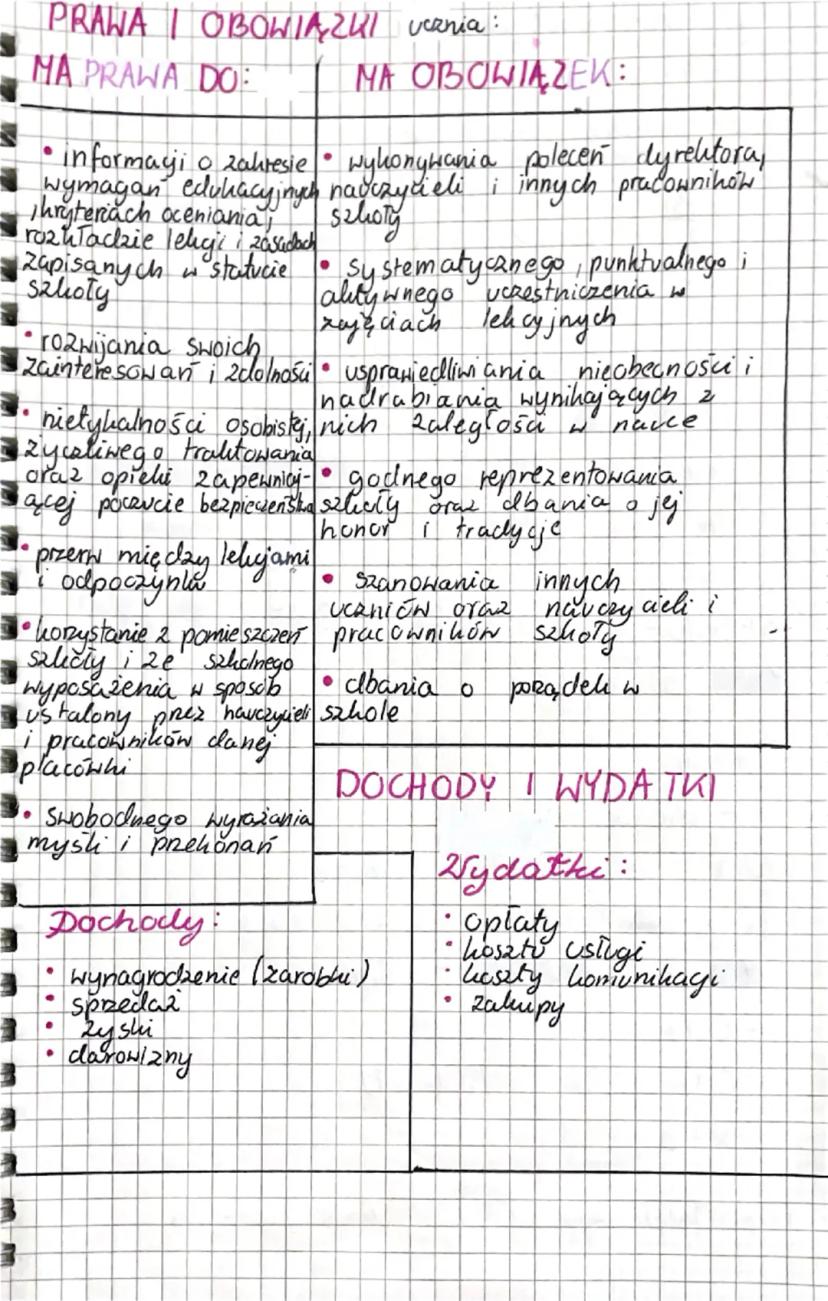 PRAWA I OBOWIĄZKI ucznia:
MA PRAWA DO:
• informacji o zakresie
wymagań edukacyjnych
, kryteriach oceniania,
rozkładzie lekcji i zasadach
zapisanych w statucie
szkoły
• rozwijania swoich
zainteresowań i zdolności
• nietykalności osobistej,
życzliwego traktowania
oraz opieki zapewniaj-
ącej poczucie bezpieczeństwa
• przerw między lekcjami
i odpoczynku
• korzystanie z pomieszczeń
szkoły i ze szkolnego
wyposażenia w sposób
ustalony przez nauczycieli
i pracowników danej
placówki
• swobodnego wyrażania
myśli i przekonań
MA OBOWIĄZEK:
• wykonywania poleceń dyrektora,
nauczycieli i innych pracowników
szkoły
• systematycznego, punktualnego i
aktywnego uczestniczenia w
zajęciach lekcyjnych
• usprawiedliwiania nieobecności i
nadrabiania wynikających z
nich zaległości w nauce
• godnego reprezentowania
szkoły oraz dbania o jej
honor i tradycje
• szanowania innych
uczniów oraz nauczycieli i
pracowników szkoły
• dbania o porządek w
szkole
DOCHODY I WYDATKI
Dochody:
• wynagrodzenie (zarobki)
• sprzedaż
• zyski
• darowizny
Wydatki:
• opłaty
• koszty usługi
• koszty komunikacji
• zakupy